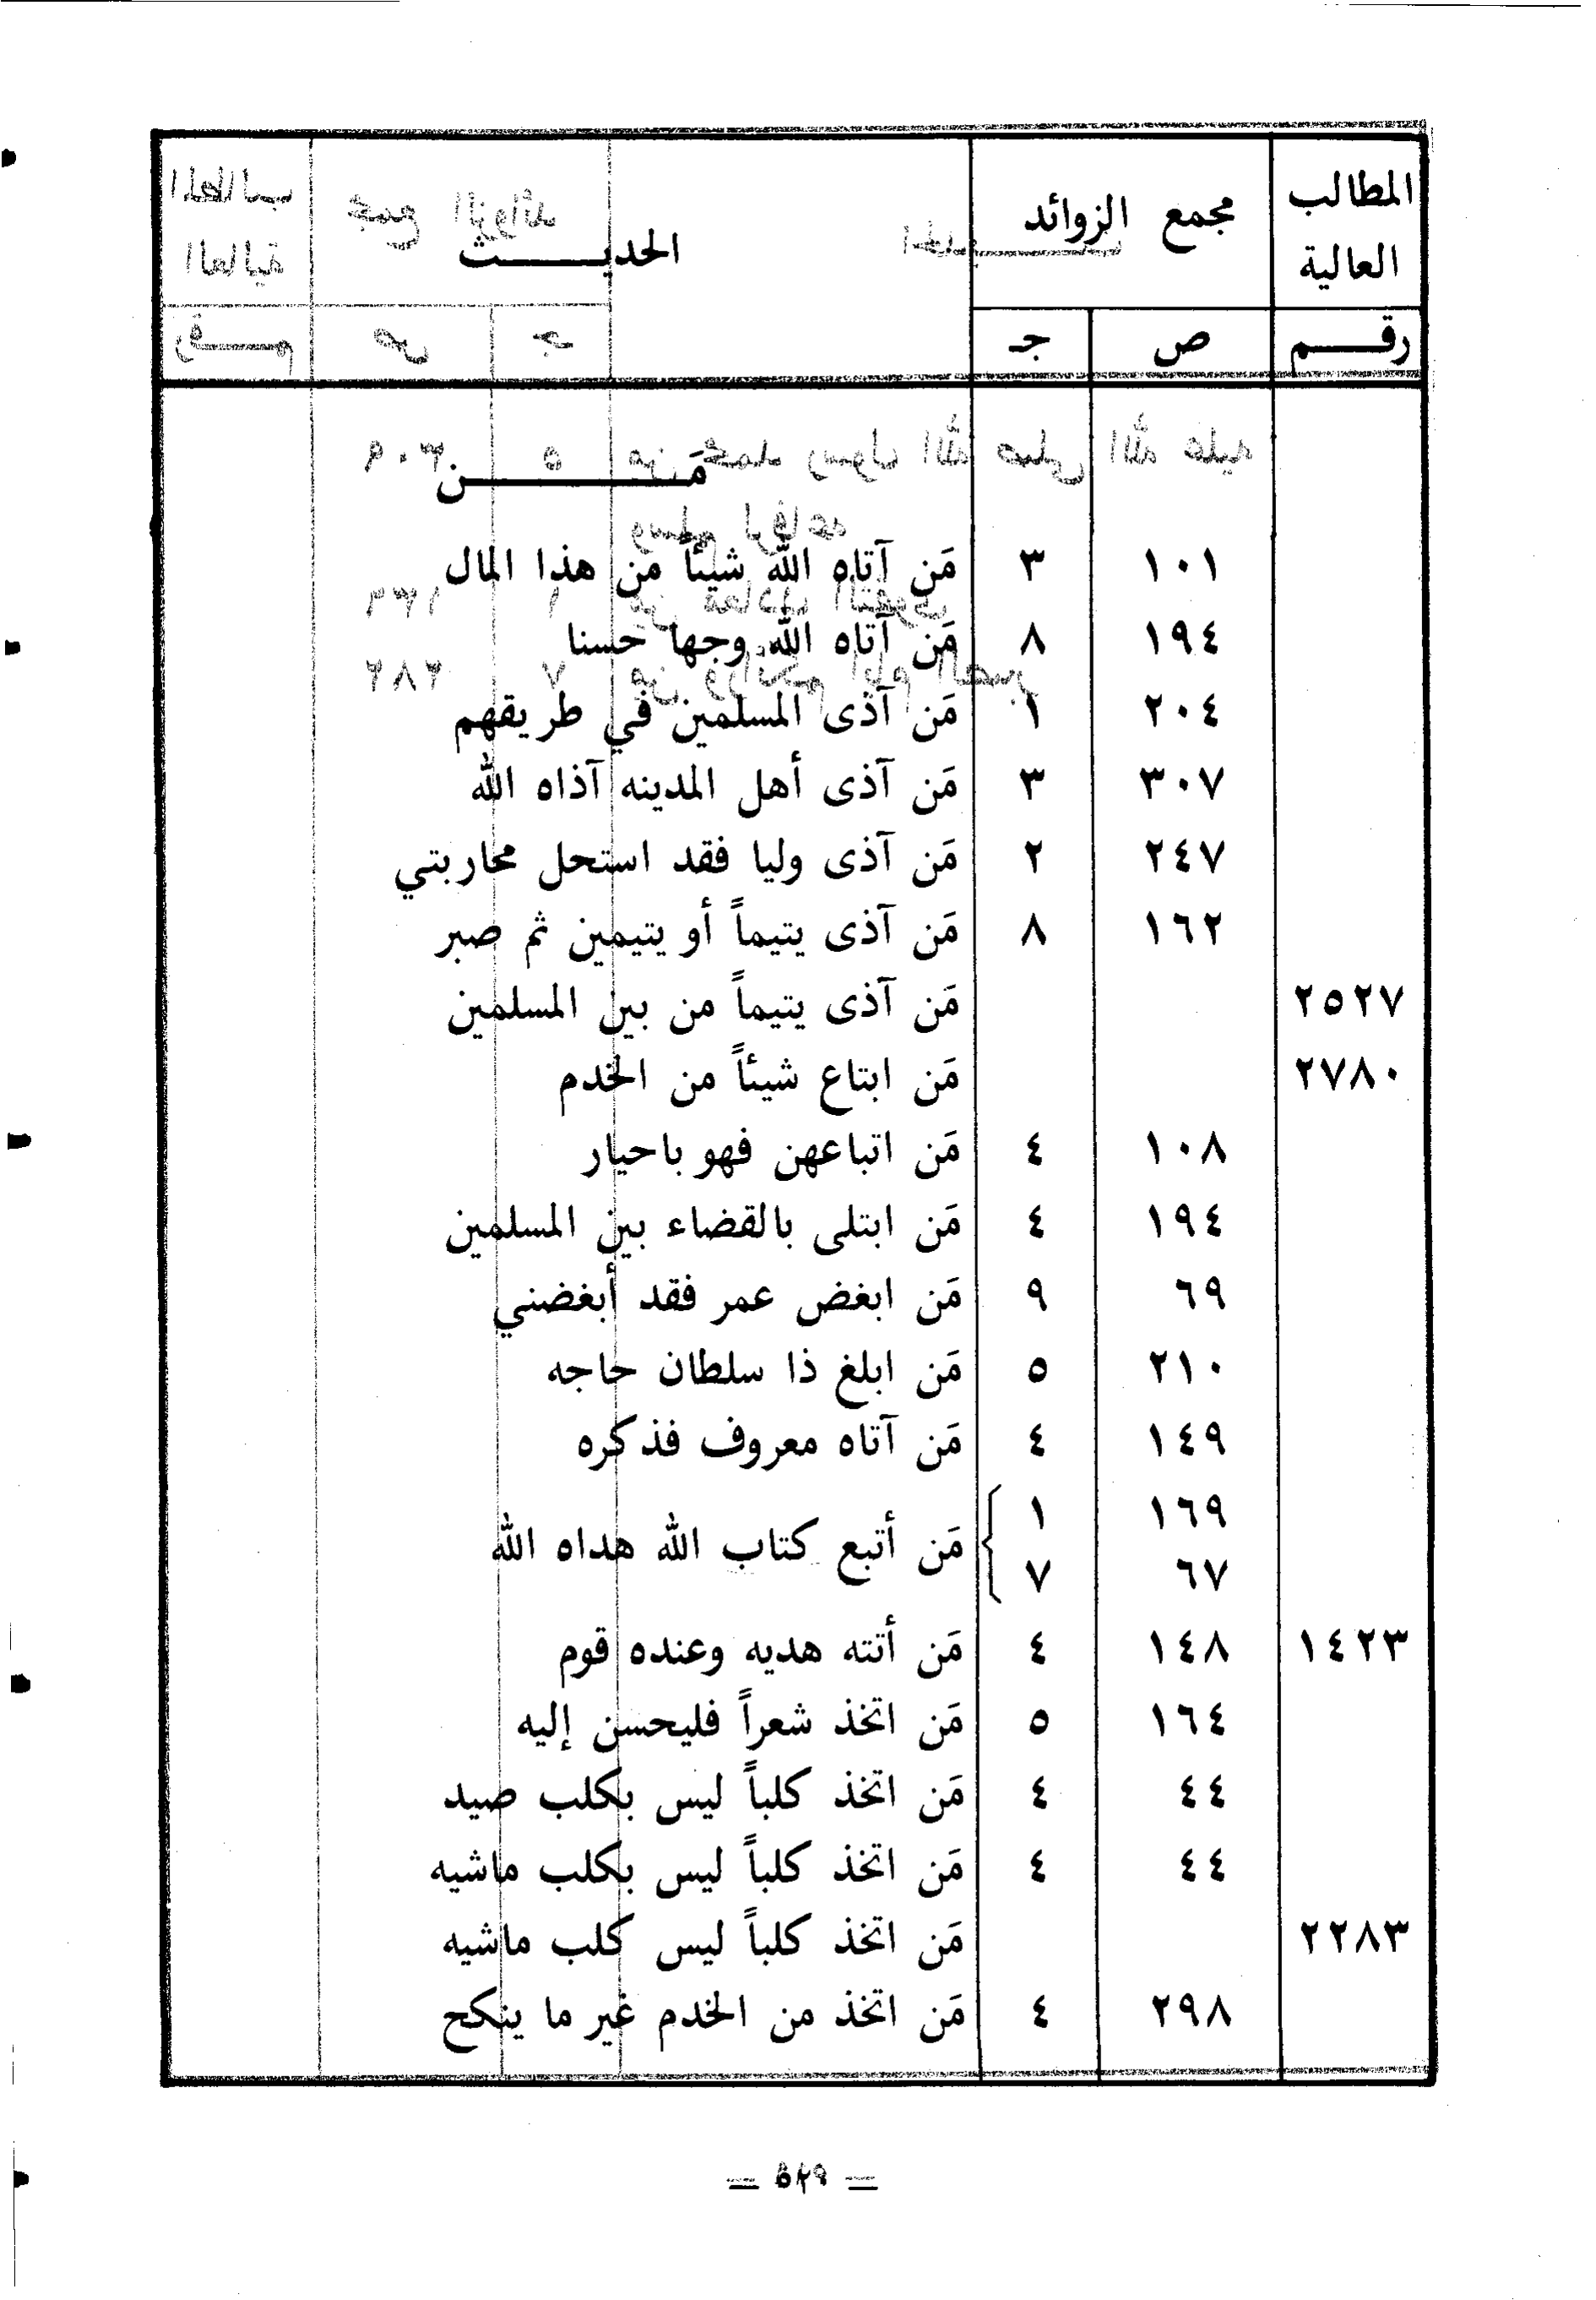 المطالب العالية مجمع الزوائد الحديث
رقم ص جـ
مَن
١٠١ ٣ مَن آتاه الله شيئاً من هذا المال
١٩٤ ٨ مَن آتاه الله وجها حسنا
٢٠٤ ١ مَن آذى المسلمين في طريقهم
٣٠٧ ٣ مَن آذى أهل المدينه آذاه الله
٢٤٧ ٢ مَن آذى وليا فقد استحل محاربتي
١٦٢ ٨ مَن آذى يتيماً أو يتيمين ثم صبر
٢٥٢٧ مَن آذى يتيماً من بين المسلمين
٢٧٨٠ مَن ابتاع شيئاً من الخدم
١٠٨ ٤ مَن اتباعهن فهو باحيار
١٩٤ ٤ مَن ابتلى بالقضاء بين المسلمين
٦٩ ٩ مَن ابغض عمر فقد أبغضني
٢١٠ ٥ مَن ابلغ ذا سلطان حاجه
١٤٩ ٤ مَن آتاه معروف فذكره
١٦٩ ١
مَن أتبع كتاب الله هداه الله
٦٧ ٧
١٤٢٣ ١٤٨ ٤ مَن أتته هديه وعنده قوم
١٦٤ ٥ مَن اتخذ شعراً فليحسن إليه
٤٤ ٤ مَن اتخذ كلباً ليس بكلب صيد
٤٤ ٤ مَن اتخذ كلباً ليس بكلب ماشيه
٢٢٨٣ مَن اتخذ كلباً ليس كلب ماشيه
٢٩٨ ٤ مَن اتخذ من الخدم غير ما ينكح
— ٥٢٩ —